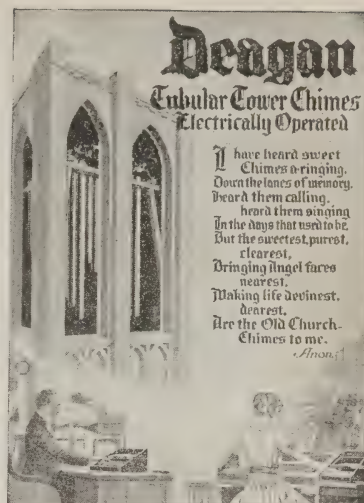 Deagan
Tubular Tower Chimes
Electrically Operated
I have heard sweet
Chimes a-ringing,
Down the lanes of memory,
Heard them calling,
heard them singing
In the days that used to be.
But the sweetest, purest,
clearest,
Bringing Angel faces
nearest,
Making life devinest,
dearest,
Are the Old Church-
Chimes to me.
-Anon.